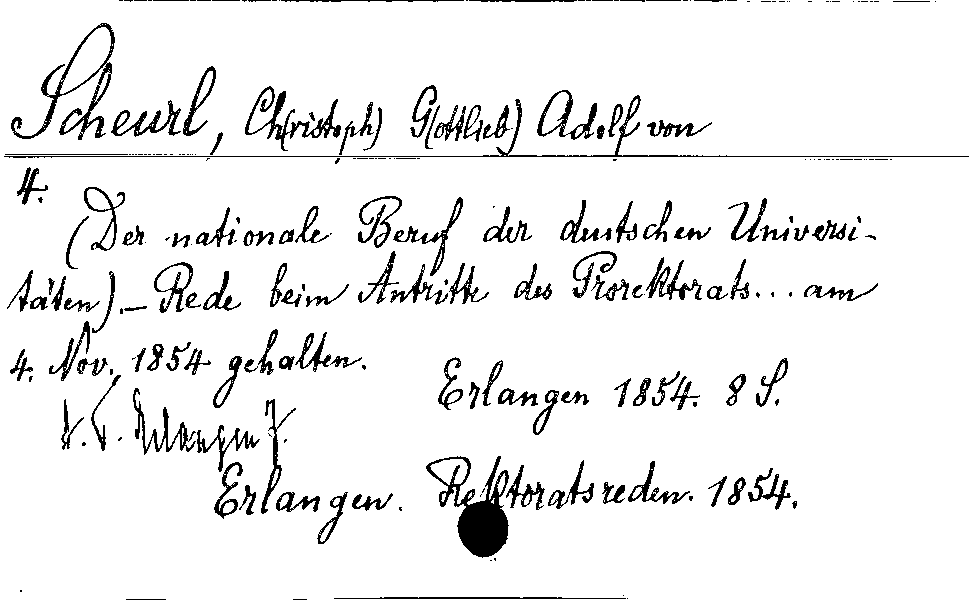 Scheurl, Ch(ristoph) G(ottlieb) Adolf von
4.
(Der nationale Beruf der deutschen Universi-
täten). – Rede beim Antritte des Prorektorats... am
4. Nov. 1854 gehalten.
Erlangen 1854. 8 S.
Erlangen
Erlangen. Rektoratsreden. 1854.